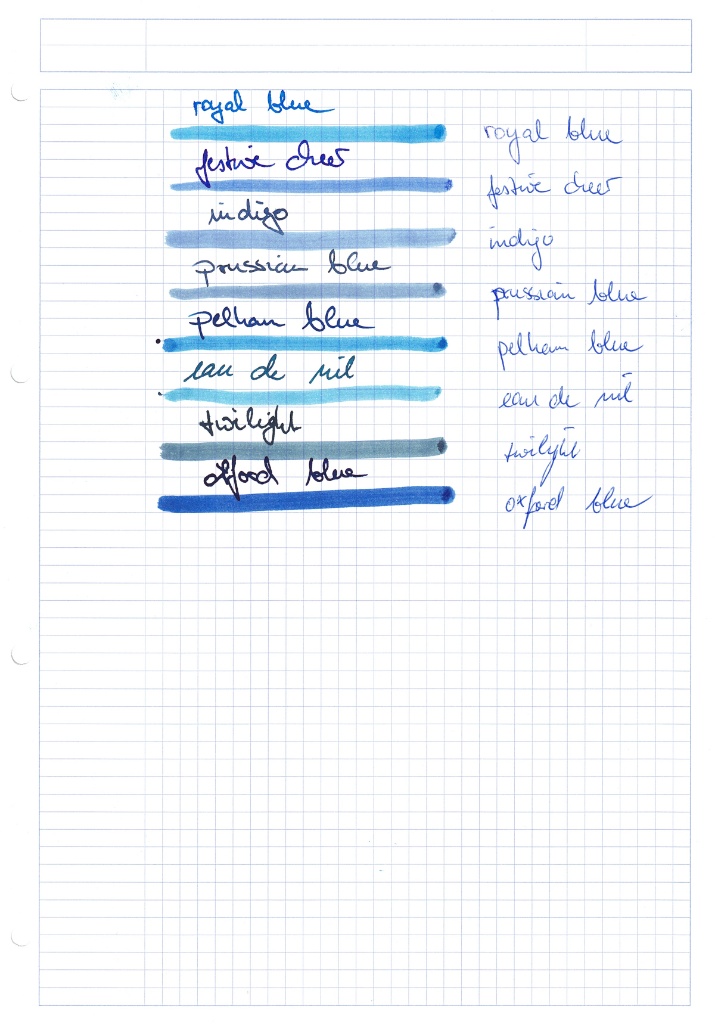 royal blue
royal blue
festive cheer
festive cheer
indigo
indigo
prussian blue
prussian blue
pelham blue
pelham blue
eau de nil
eau de nil
twilight
twilight
oxford blue
oxford blue